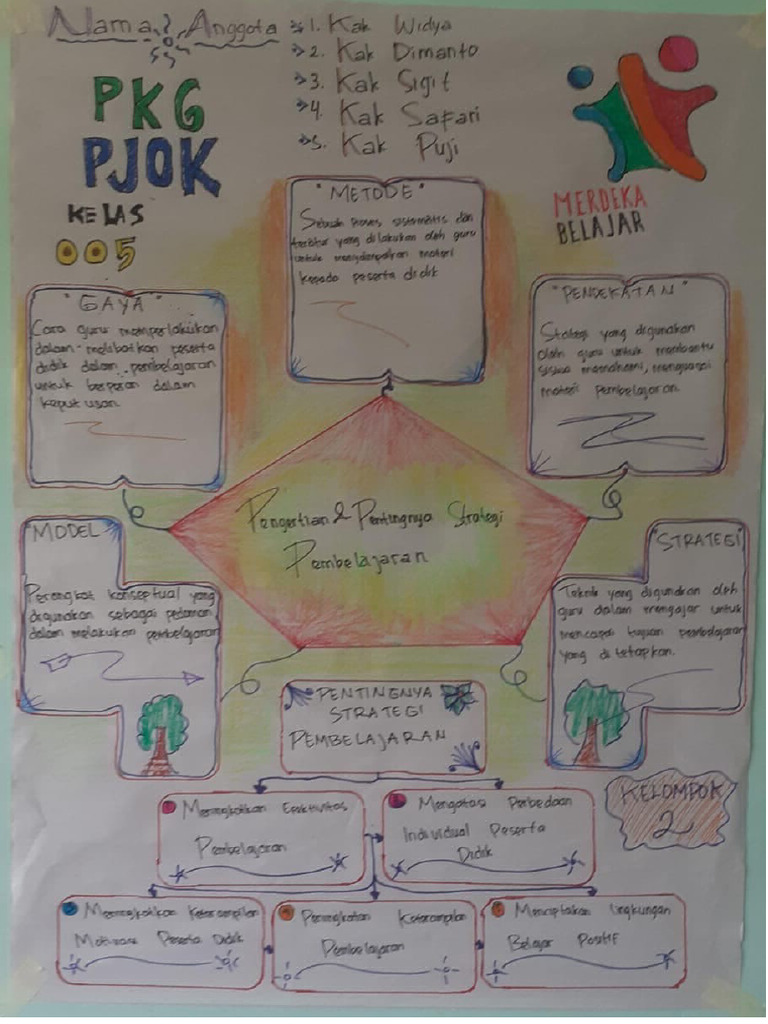 Nama Anggota
1. Kak Widya
2. Kak Dimanto
3. Kak Sigit
4. Kak Safari
5. Kak Puji
PKG
PJOK
KELAS
005
MERDEKA
BELAJAR
"METODE"
Sebuah Proses sistematis dan
teratur yang dilakukan oleh guru
untuk menyampaikan materi
kepada peserta didik
"GAYA"
Cara guru memperlakukan
dalam melibatkan peserta
didik dalam pembelajaran
untuk berperan dalam
keputusan
"PENDEKATAN"
Strategi yang digunakan
oleh guru untuk membantu
siswa memahami, menguasai
materi pembelajaran.
Pengertian & Pentingnya Strategi
Pembelajaran
"MODEL"
Perangkat konseptual yang
digunakan sebagai pedoman
dalam melakukan pembelajaran
"STRATEGI"
Teknik yang digunakan oleh
guru dalam mengajar untuk
mencapai tujuan pembelajaran
yang di tetapkan.
PENTINGNYA
STRATEGI
PEMBELAJARAN
KELOMPOK
2
Meningkatkan Efektivitas
Pembelajaran
Mengatasi Perbedaan
Individual Peserta
Didik
Meningkatkan Keterampilan
Motivasi Peserta Didik
Peningkatan Keterampilan
Pembelajaran
Menciptakan Lingkungan
Belajar Positif